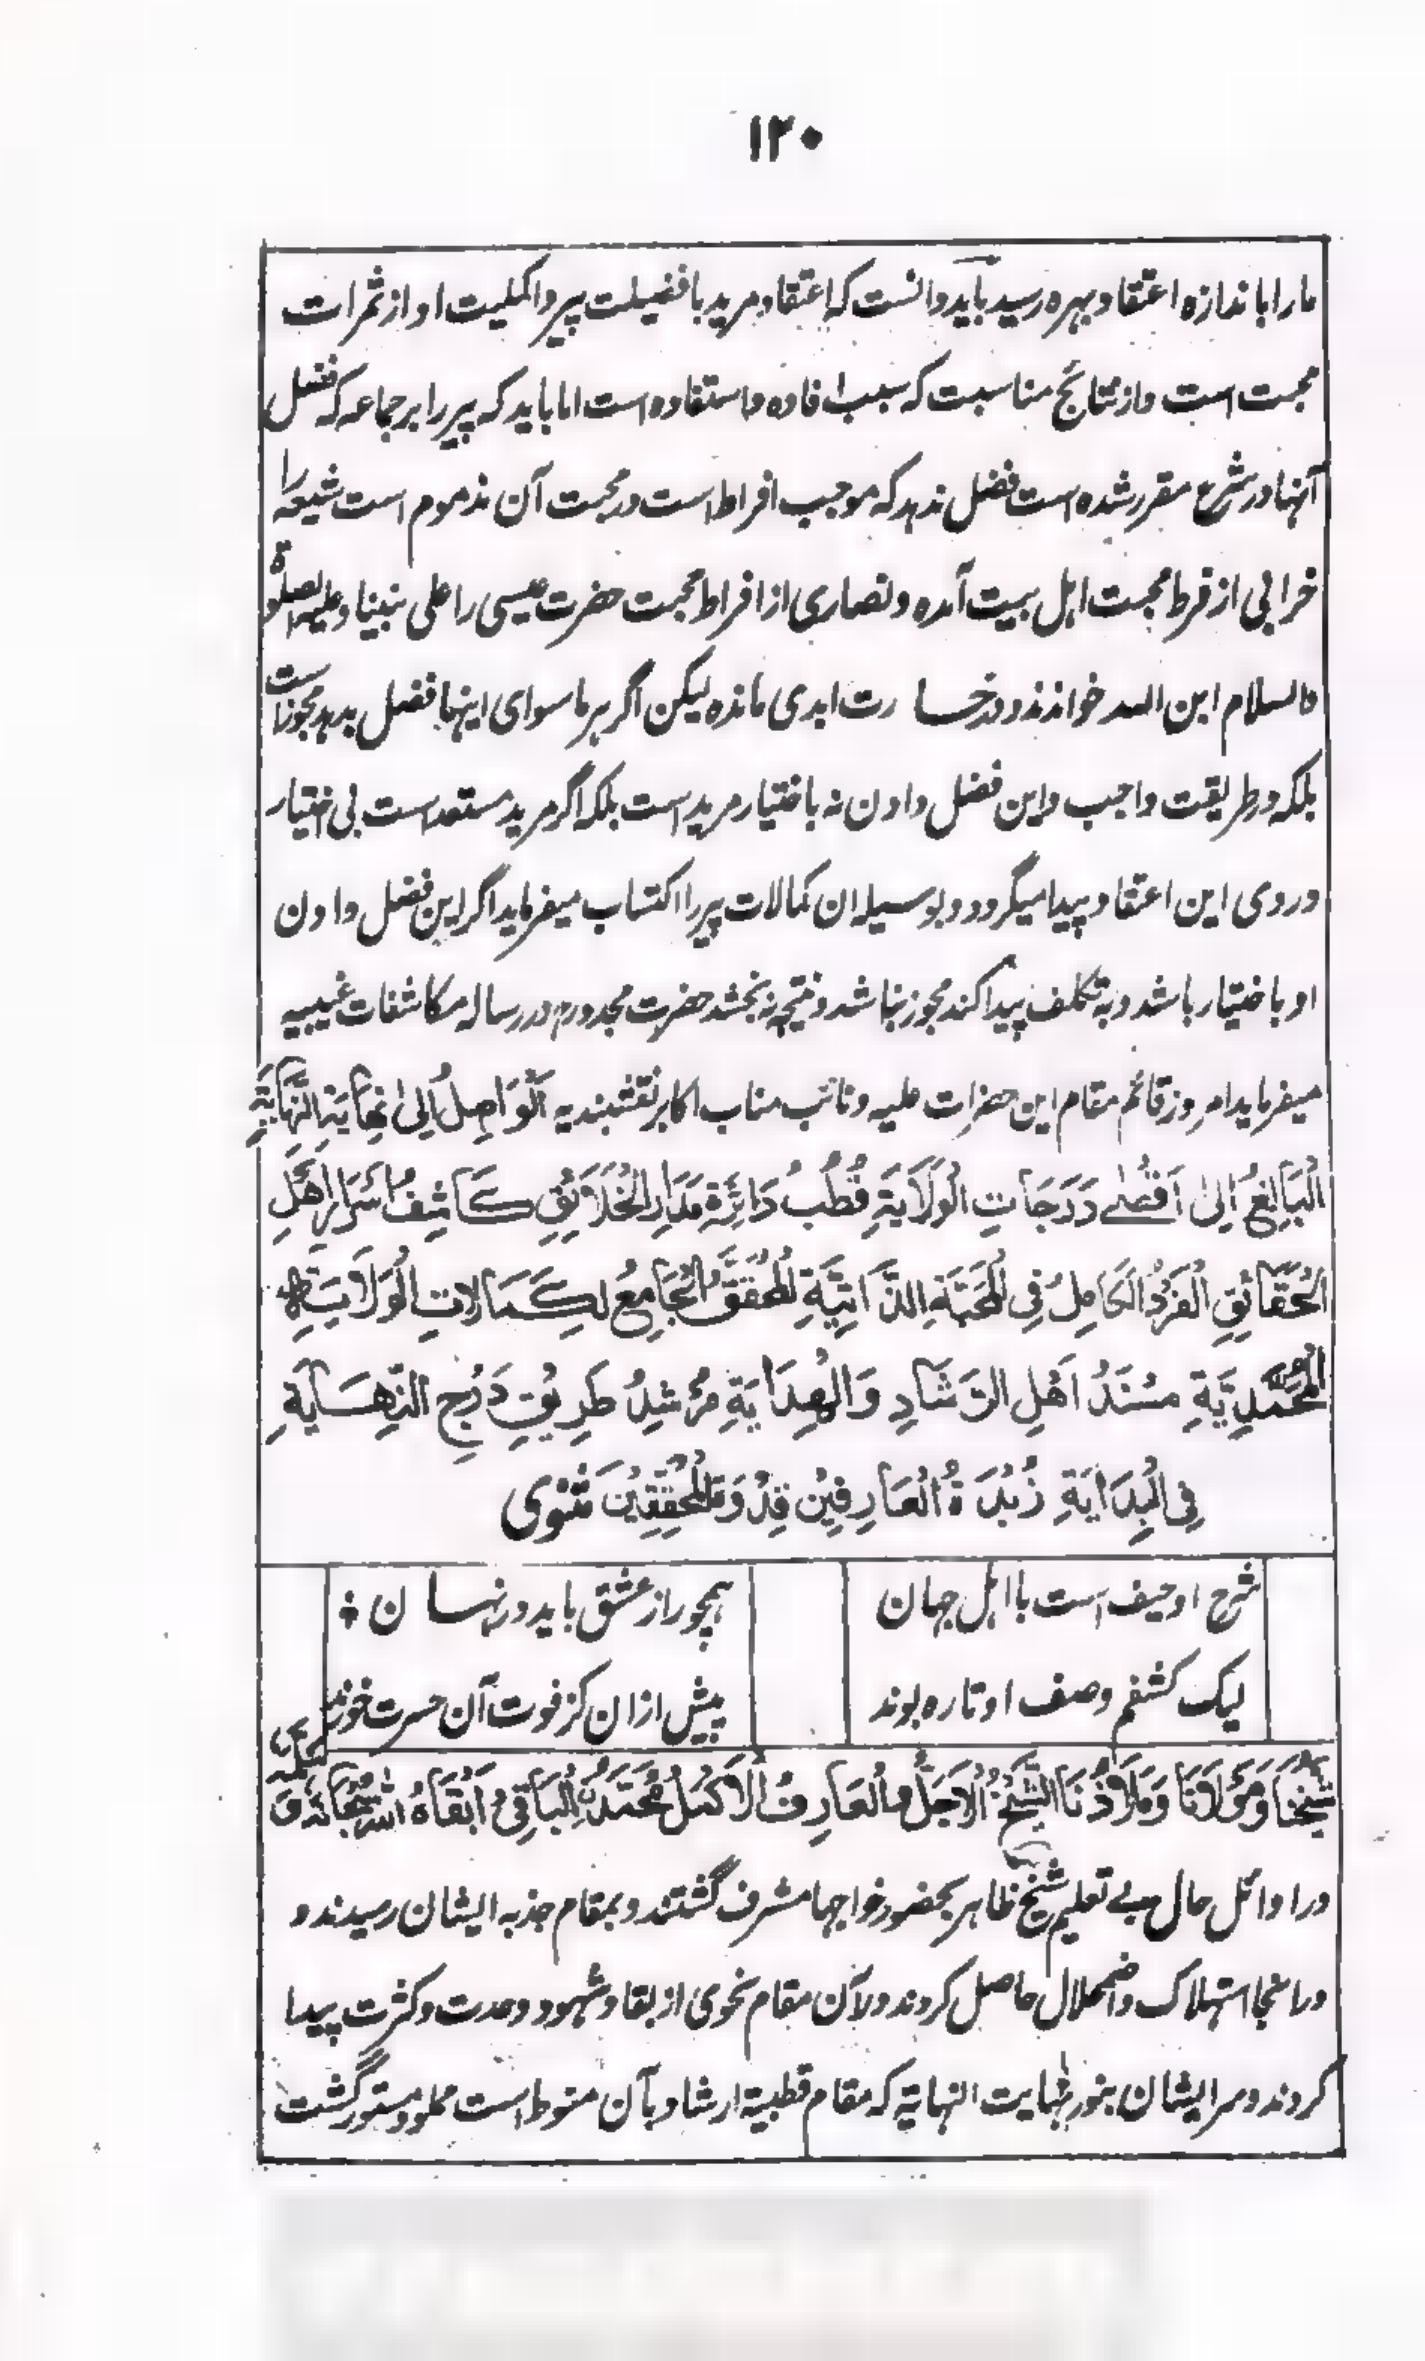 ۱۲۰
مارا باندازه اعتقاد بهره رسید باید دانست که اعتقاد مرید بافضیلت پیر و اکملیت او از ثمرات
محبت است و از نتائج مناسبت که سبب افاده و استفاده است اما باید که پیر را بر جماعه که فضل
آنها در شرع مقرر شده است فضل ندهد که موجب افراط است در محبت آن مذموم است شیعه را
خرابی از فرط محبت اهل بیت آمده و نصاری از افراط محبت حضرت عیسی را علی نبینا و علیه الصلوة
والسلام ابن الله خواندند و در خسا رت ابدی مانده لیکن اگر بر ماسوای اینها فضل بدهد مجوز است
بلکه در طریقت واجب و این فضل دادن نه باختیار مرید است بلکه اگر مرید مستعد است بی اختیار
در وی این اعتقاد پیدا میگردد و بوسیله ان کمالات پیر را اکتساب میفرماید اگر این فضل دادن
او باختیار باشد و به تکلف پیدا کند مجوز نباشد و نتیجه نه بخشد حضرت مجدد رم در رساله مکاشفات غیبیه
میفرماید امروز قائم مقام این حضرات علیه و نائب مناب اکابر نقشبندیه اَلْوَاصِلُ اِلیٰ نِهَایَةِ النِّهَایَةِ
اَلْبَالِغُ اِلیٰ اَقْصٰے دَرَجَاتِ الْوَلَایَةِ قُطْبُ دَائِرَةِ مَدَارِ الْخَلَایِقِ کَاشِفُ اَسْرَارِ اَهْلِ
الْحَقَائِقِ الْفَرْدُ الْکَامِلُ فِی الْمَحَبَّةِ الذَّاتِیَّةِ الْمُحَقِّقُ الْجَامِعُ لِکَمَالَاتِ الْوَلَایَةِ
الْمُحَمَّدِیَّةِ مَسْنَدُ اَهْلِ الرَّشَادِ وَ الْهِدَایَةِ مُرْشِدُ طَرِیْقِ دَرْجِ النِّهَایَةِ
فِی الْبِدَایَةِ زُبْدَةُ الْعَارِفِیْنَ قِدْوَةُ الْمُحَقِّقِیْنَ مثنوی
شرح او حیف است با اهل جهان همچو راز عشق باید در نهسا ن ❖
لیک گفتم وصف او تا ره برند پیش ازان کز فوت آن حسرت خورند
شَیْخُنَا وَ مَوْلَانَا وَ مَلَاذُنَا الشَّیْخُ الْاَجَلُّ وَ الْعَارِفُ الْاَکْمَلُ مُحَمَّدُ الْبَاقِیْ اَبْقَاهُ اللّٰهُ سُبْحَانَهٗ
در اوائل حال بے تعلیم شیخ ظاهر بحضور خواجها مشرف گشتند و بمقام جذبه ایشان رسیدند و
در انجا استهلاک و اضمحلال حاصل کردند و در آن مقام نحوی از بقا و شهود وحدت و کثرت پیدا
کردند و سر ایشان بنور نهایت النهایة که مقام قطبیة ارشاد بآن منوط است مملو و مستور گشت